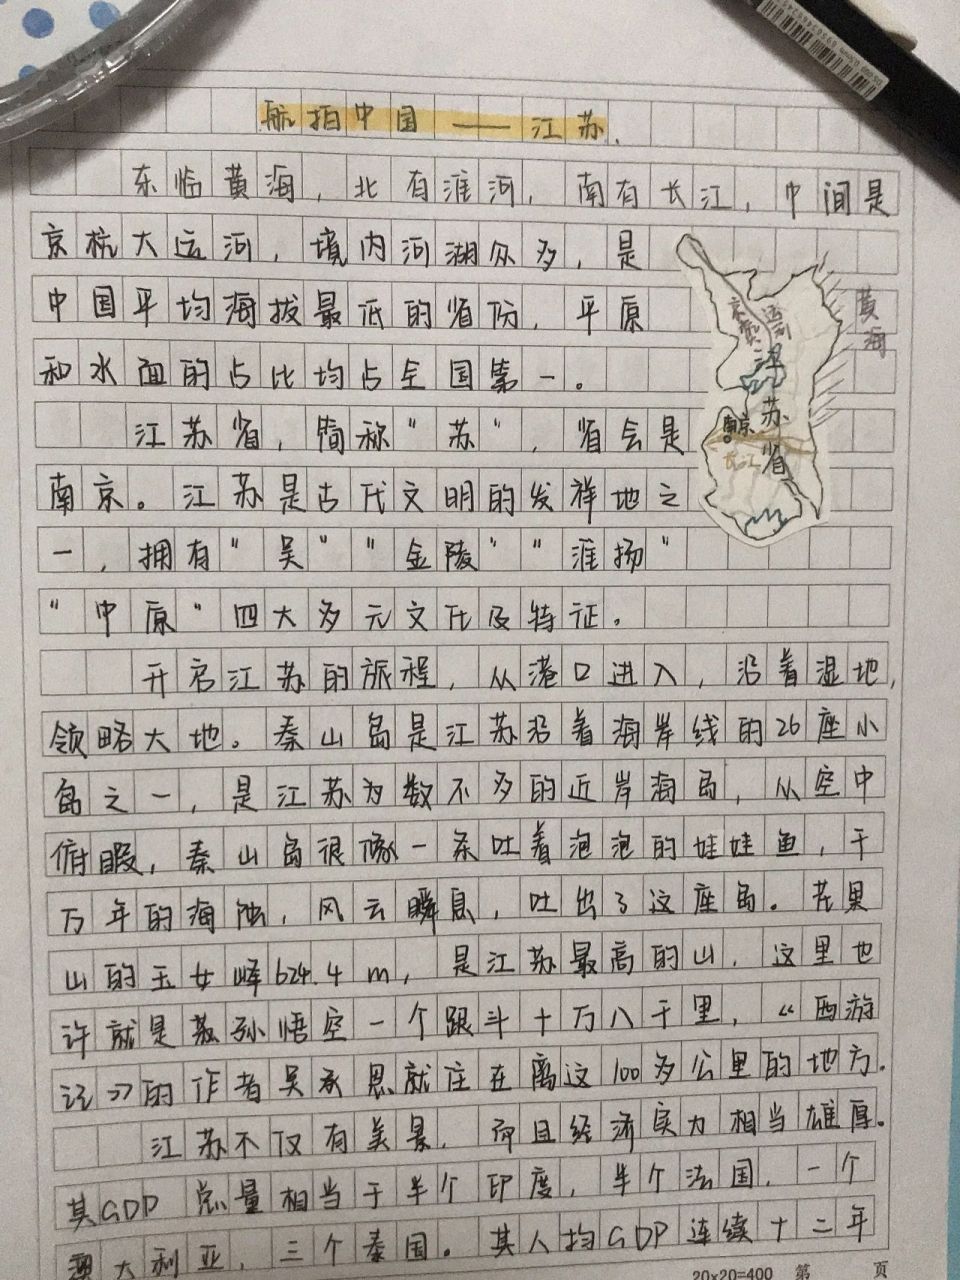 航拍中国——江苏.
东临黄海,北有淮河,南有长江,中间是
京杭大运河,境内河湖众多,是
中国平均海拔最低的省份,平原
和水面的占比均占全国第一。
江苏省,简称"苏",省会是
南京。江苏是古代文明的发祥地之
一,拥有"吴""金陵""淮扬"
"中原"四大多元文化及特征。
开启江苏的旅程,从港口进入,沿着湿地,
领略大地。秦山岛是江苏沿着海岸线的26座小
岛之一,是江苏为数不多的近岸海岛,从空中
俯瞰,秦山岛很像一条吐着泡泡的娃娃鱼,千
万年的海蚀,风云瞬息,吐出了这座岛。花果
山的玉女峰624.4m,是江苏最高的山,这里也
许就是孙悟空一个跟斗十万八千里,《西游
记》的作者吴承恩就住在离这100多公里的地方.
江苏不仅有美景,而且经济实力相当雄厚.
其GDP总量相当于半个印度,半个法国,一个
澳大利亚,三个泰国。其人均GDP连续十二年
黄海
京杭
运河
江苏省
南京
长江
20x20=400 第 页